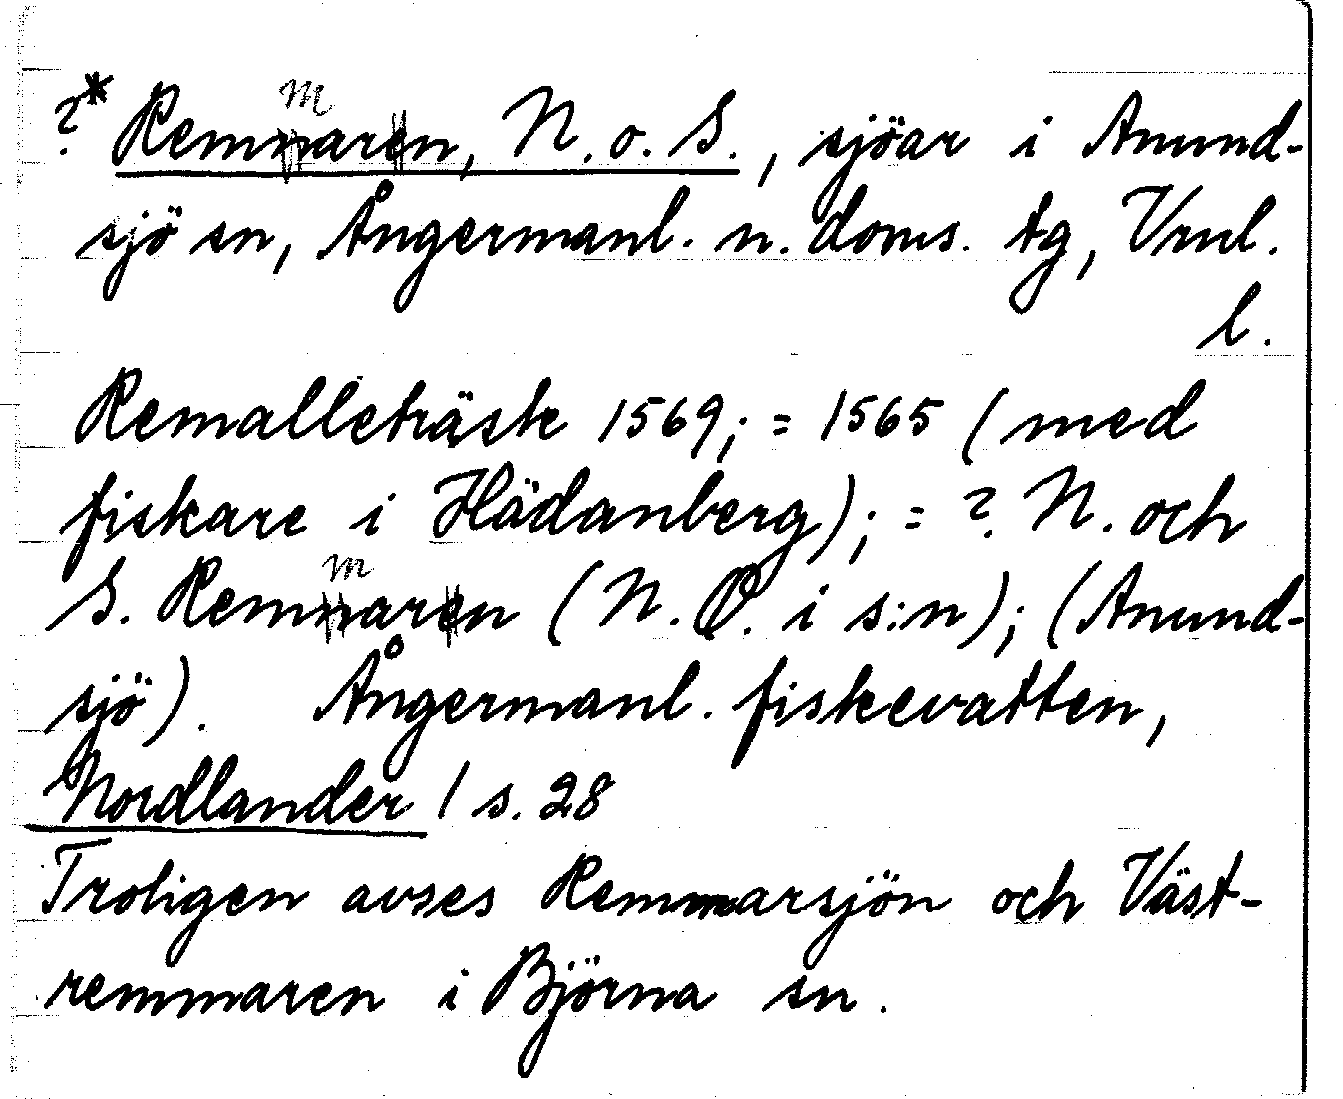 ?* Remmaren, N. o. S., sjöar i Anund-
sjö sn, Ångermanl. n. doms. tg, Vrnl.
l.
Remalleträsk 1569; = 1565 (med
fiskare i Hädanberg); = ? N. och
S. Remmaren (N. Ö. i s:n); (Anund-
sjö). Ångermanl. fiskevatten,
Nordlander / s. 28
Troligen avses Remmarsjön och Väst-
remmaren i Björna sn.